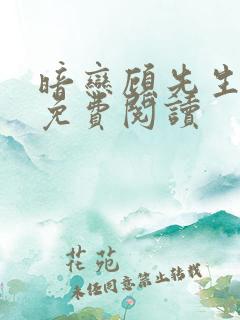 暗戀顧先生
免費閱讀
花苑
未经同意禁止转载